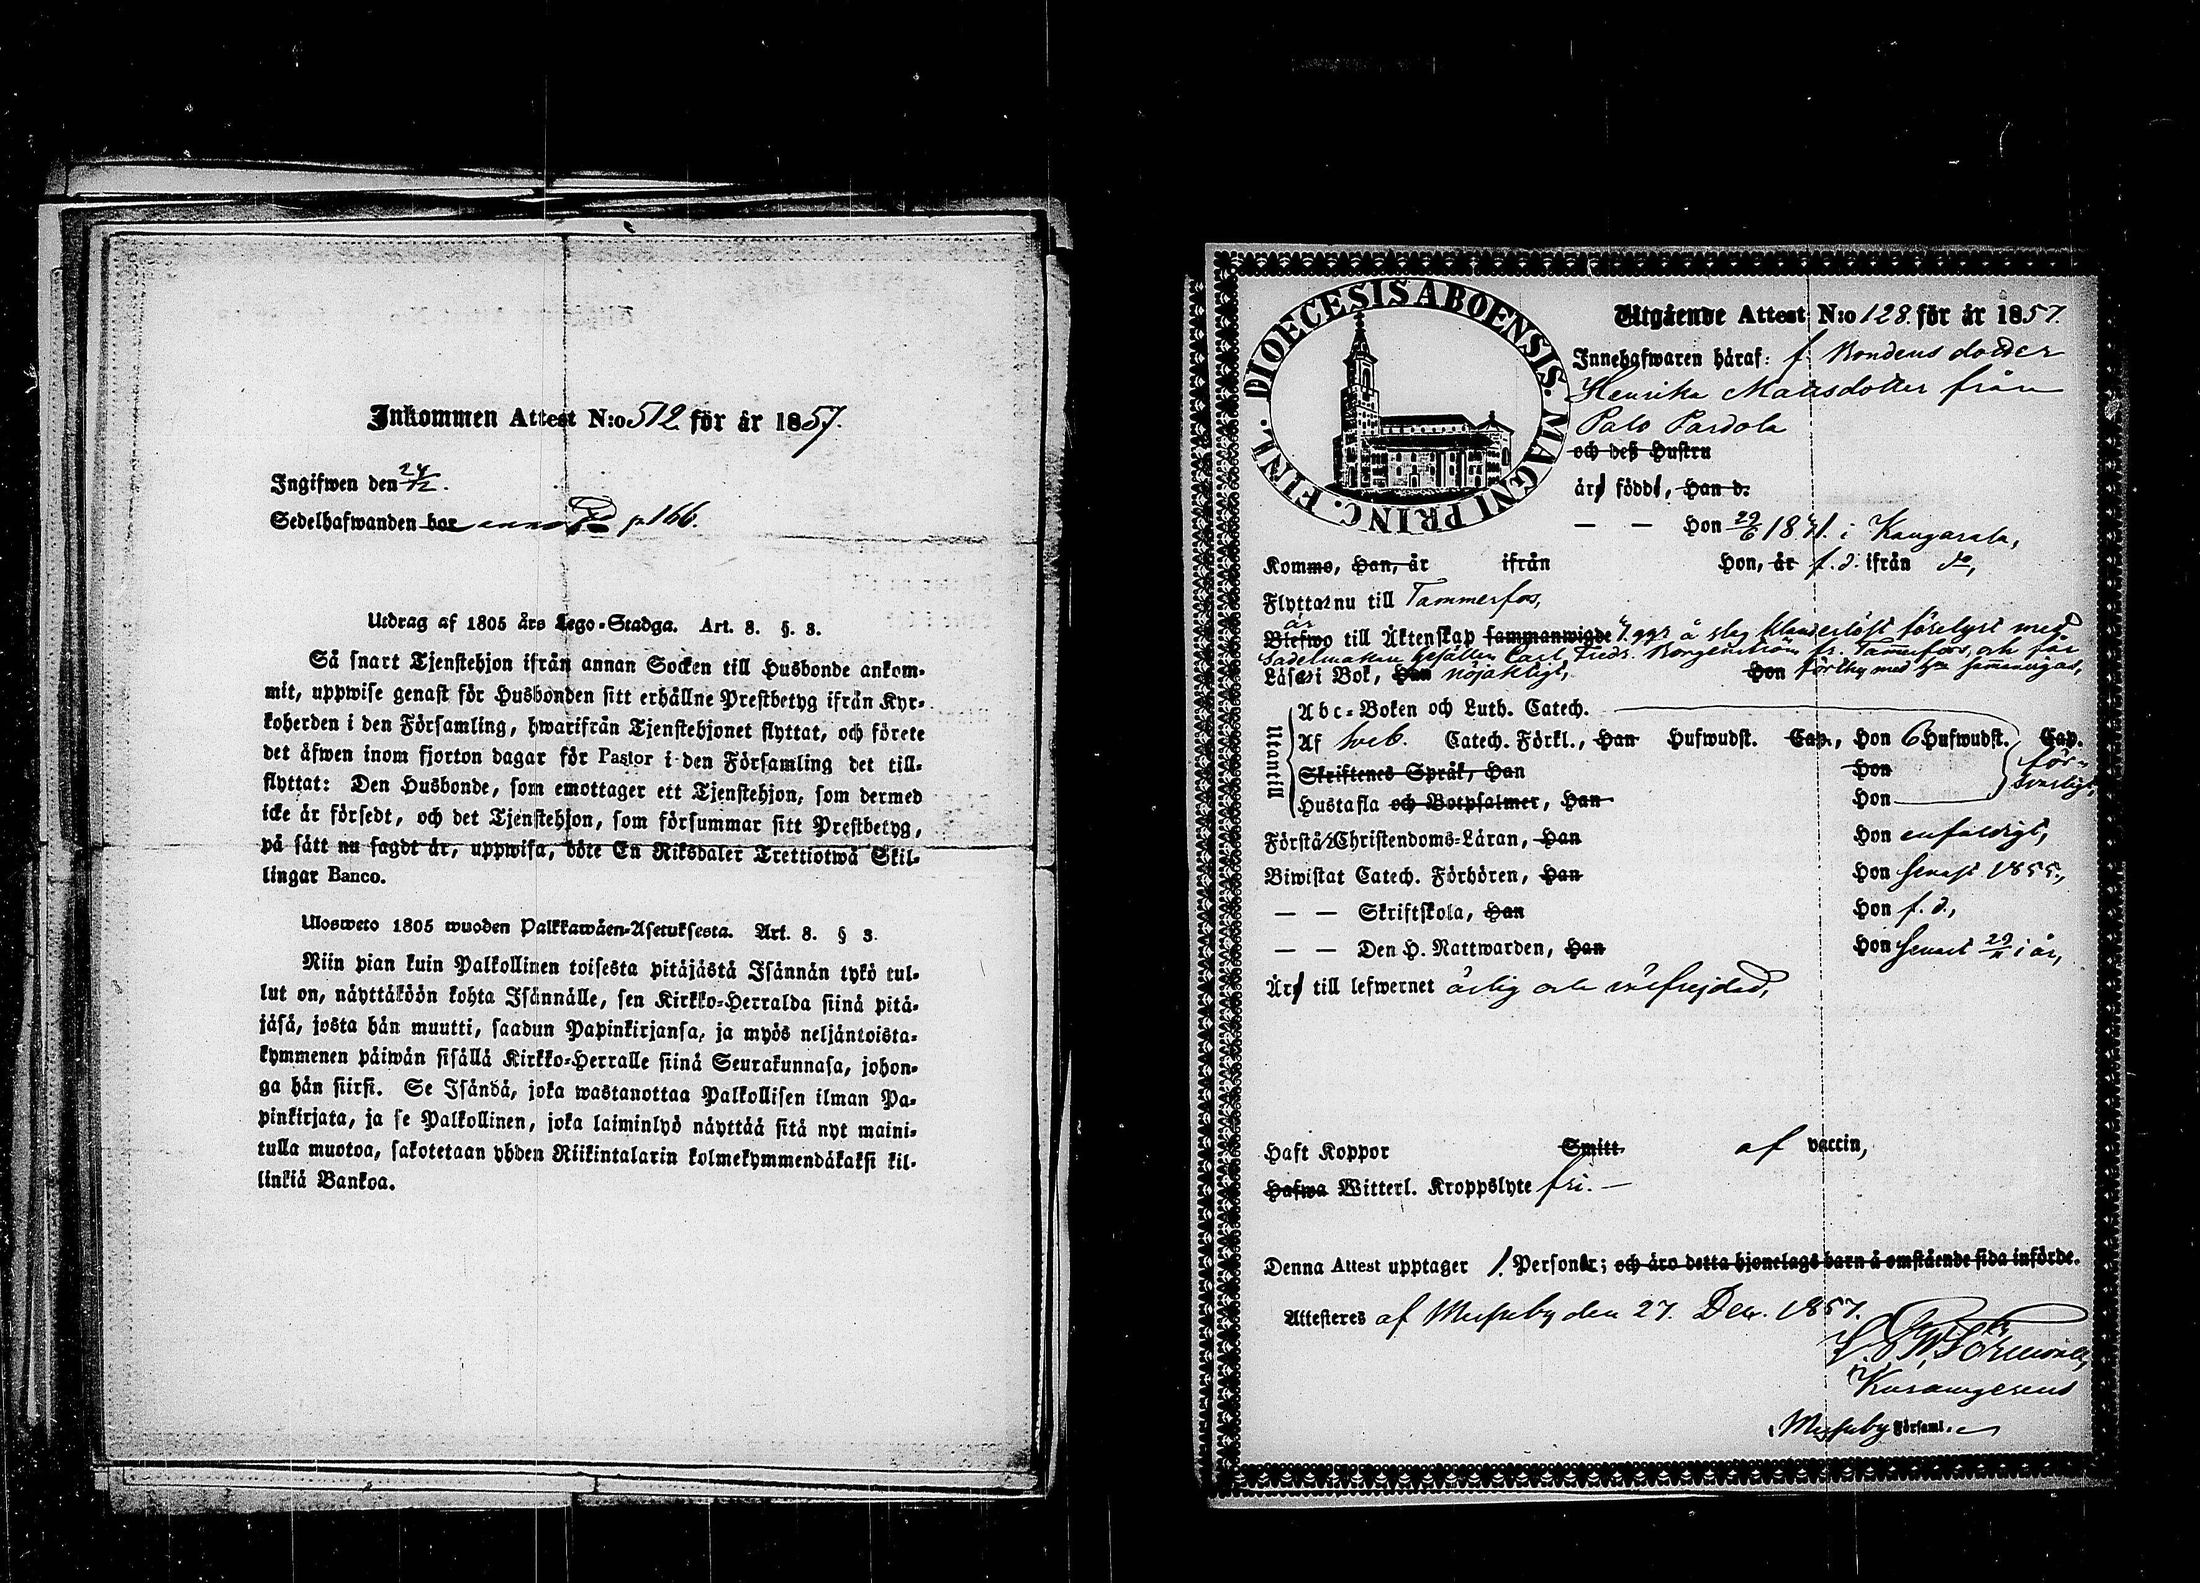 Inkommen Attest N:o 512 för år 1857.
Ingifwen den 24/12.
Sedelhafwanden bor p 166.
Utdrag af 1805 års Lego-Stadga. Art. 8. §. 3.
Så snart Tjenstehjon ifrån annan Socken till Husbonde ankom-
mit, uppwise genast för Husbonden sitt erhållne Prestbetyg ifrån Kyr-
koherden i den Församling, hwarifrån Tjenstehjonet flyttat, och förete
det äfwen inom fjorton dagar för Pastor i den Församling det till-
flyttat: Den Husbonde, som emottager ett Tjenstehjon, som dermed
icke är försedt, och det Tjenstehjon, som försummar sitt Prestbetyg,
på sätt nu sagdt är, uppwisa, böte En Riksdaler Trettiotwå Skil-
lingar Banco.
Ulosweto 1805 wuoden Palkkawäen-Asetuksesta. Art. 8. § 3.
Niin pian kuin Palkollinen toisesta pitäjästä Isännän tykö tul-
lut on, näyttäköön kohta Isännälle, sen Kirkko-Herralda siinä pitä-
jäsä, josta hän muutti, saadun Papinkirjansa, ja myös neljäntoista-
kymmenen päiwän sisällä Kirkko-Herralle siinä Seurakunnasa, johon-
ga hän siirsi. Se Isändä, joka wastanottaa Palkollisen ilman Pa-
pinkirjata, ja se Palkollinen, joka laiminlyö näyttää sitä nyt maini-
tulla muotoa, sakotetaan yhden Riikintalarin kolmekymmendäkaksi kil-
linkiä Bankoa.
DIOECESIS ABOENSIS. MAGNI PRINC. FINL.
Utgående Attest N:o 128. för år 1857.
Innehafwaren häraf: f. Bondens dotter
Henrika Mattsdotter från
Palo Pardola
och deß Hustru
är född, Han d.
— — Hon 29/6 18 i Kangasala,
Komms, Han, år ifrån Hon, år f. d. ifrån do,
Flyttar nu till Tammerfors,
är
Blefwo till Äktenskap sammanwigde 7. ggr å slag klanderlöst förelyst med
Sadelmakare Gesällen Carl Fredr. Borgenström fr. Tammerfors, och får
Läser i Bok, Han nöjaktligt, Hon förthy med hm sammanvigas,
Utantill
Abc-Boken och Luth. Catech.
Af Sveb. Catech. Förkl., Han Hufwudst. Cap., Hon 6 Hufwudst. Cap.
Skriftenes Språk, Han Hon för-
Hustafla och Botpsalmer, Han Hon svarligt,
Förstår Christendoms-Läran, Han Hon enfaldigt,
Biwistat Catech. Förhören, Han Hon senast 1855,
— — Skriftskola, Han Hon f. d.,
— — Den H. Nattwarden, Han Hon senast 29/11 i år,
Är till lefwernet ärlig och välfrejdad,
Haft Koppor Smitt af vaccin,
Hafwa Witterl. Kroppslyte fri. —
Denna Attest upptager 1. Person; och äro detta hjonelags barn å omstående sida införde.
Attesteres af Messuby den 27. Dec. 1857.
i Messuby Församl.